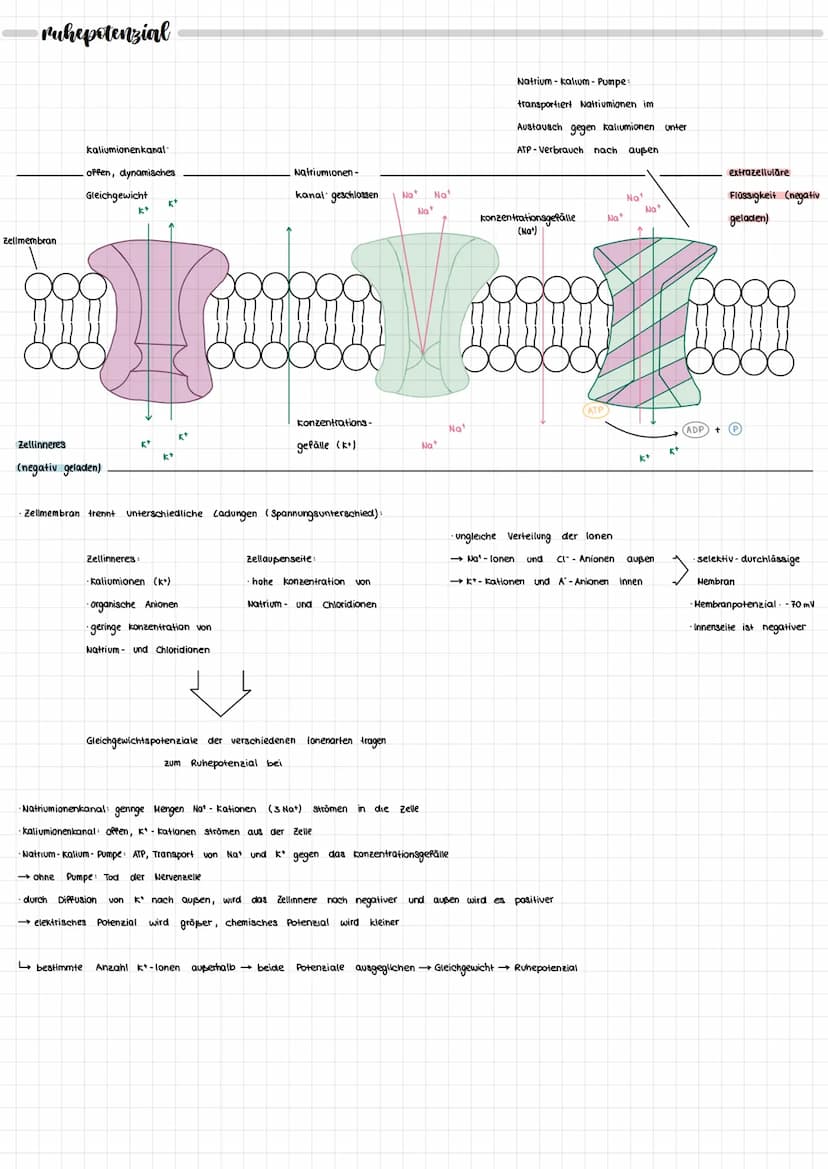 ruhepotenzial
Natrium-Kalium-Pumpe:
transportiert Natriumionen im
Austausch gegen Kaliumionen unter
ATP-Verbrauch nach außen
Kaliumionenkanal:
offen, dynamisches
Gleichgewicht
K⁺
K⁺
Natriumionen-
kanal: geschlossen
Na⁺ Na⁺
Na⁺
Konzentrationsgefälle
(Na⁺)
Na⁺
Na⁺
Na⁺
extrazelluläre
Flüssigkeit (negativ
geladen)
Zellmembran
Konzentrations-
gefälle (K⁺)
Na⁺
Na⁺
ATP
ADP + P
K⁺
K⁺
K⁺
K⁺
K⁺
Zellinneres
(negativ geladen)
· Zellmembran trennt unterschiedliche Ladungen (Spannungsunterschied):
Zellinneres:
· Kaliumionen (K⁺)
· organische Anionen
· geringe Konzentration von
Natrium- und Chloridionen
Zellaußenseite:
· hohe Konzentration von
Natrium- und Chloridionen
· ungleiche Verteilung der Ionen
→ Na⁺-Ionen und Cl⁻-Anionen außen
→ K⁺-Kationen und A⁻-Anionen innen
· selektiv-durchlässige
Membran
· Membranpotenzial: -70 mV
· Innenseite ist negativer
Gleichgewichtspotenziale der verschiedenen Ionenarten tragen
zum Ruhepotenzial bei
· Natriumionenkanal: geringe Mengen Na⁺-Kationen (3 Na⁺) strömen in die Zelle
· Kaliumionenkanal: offen, K⁺-Kationen strömen aus der Zelle
· Natrium-Kalium-Pumpe: ATP, Transport von Na⁺ und K⁺ gegen das Konzentrationsgefälle
→ ohne Pumpe: Tod der Nervenzelle
· durch Diffusion von K⁺ nach außen, wird das Zellinnere noch negativer und außen wird es positiver
→ elektrisches Potenzial wird größer, chemisches Potenzial wird kleiner
↳ bestimmte Anzahl K⁺-Ionen außerhalb → beide Potenziale ausgeglichen → Gleichgewicht → Ruhepotenzial